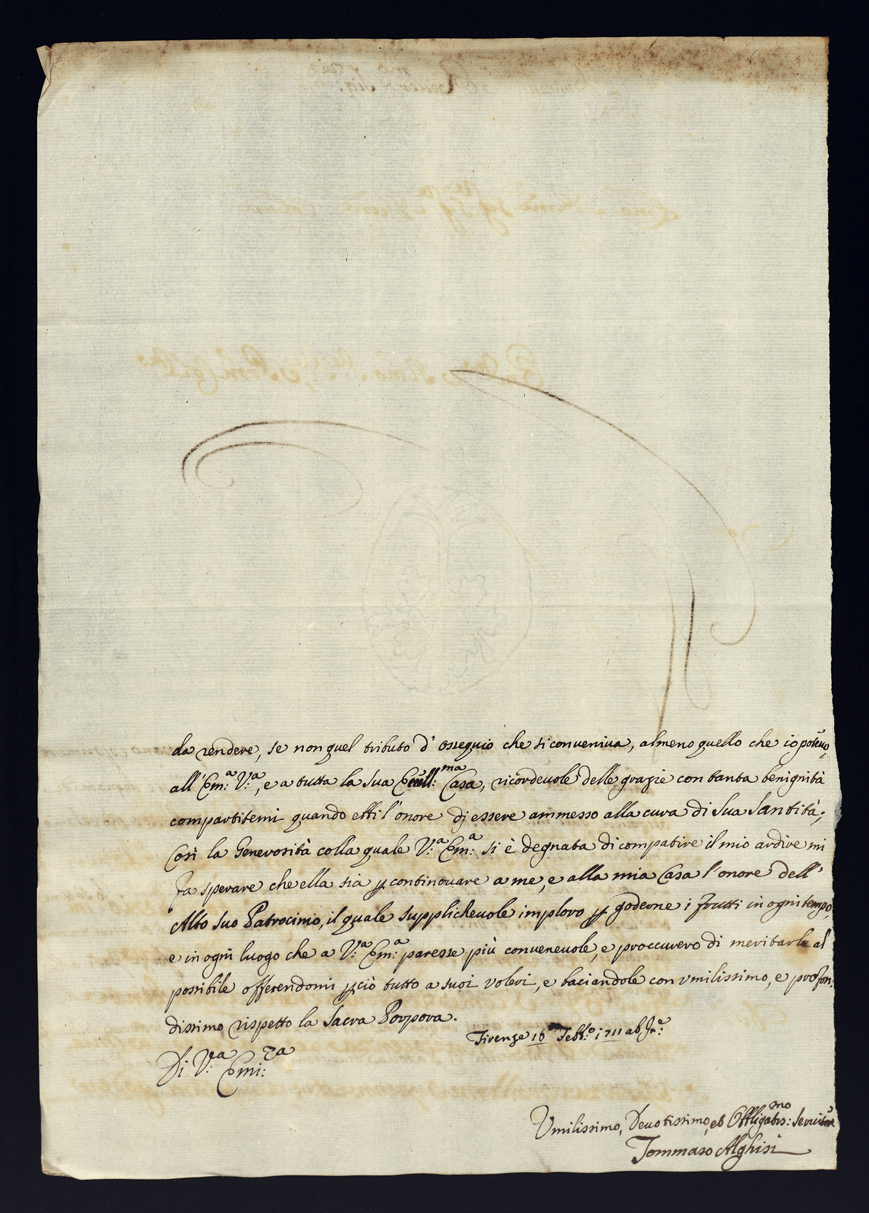 da rendere, se non quel tributo d' ossequio che si conveniva, almeno quello che io potevo
all' Em:ᵃ V:ᵃ, e a tutta la sua Eccell:ᵐᵃ Casa, ricordevole delle grazie con tanta benignità
compartitemi quando ebbi l'onore di essere ammesso alla cura di Sua Santità;
Così la Generosità colla quale V:ᵃ Em:ᵃ si è degnata di compatire il mio ardire mi
fa sperare che ella sia p continovare a me, e alla mia Casa l'onore dell'
Alto suo Patrocinio, il quale supplichevole imploro p goderne i frutti in ogni tempo,
e in ogni luogo che a V:ᵃ Em:ᵃ paresse più convenevole, e proccurerò di meritarlo al
possibile offerendomi p ciò tutto a suoi voleri, e baciandole con umilissimo, e profon
dissimo rispetto la Sacra Porpora.
Firenze 16 Febb:ᵒ 1711 ab Inc:ᵉ
Di V:ᵃ Emi:ᶻᵃ
Umilissimo, Devotissimo, et Obbligatis:ᵐᵒ Servitore
Tommaso Alghisi